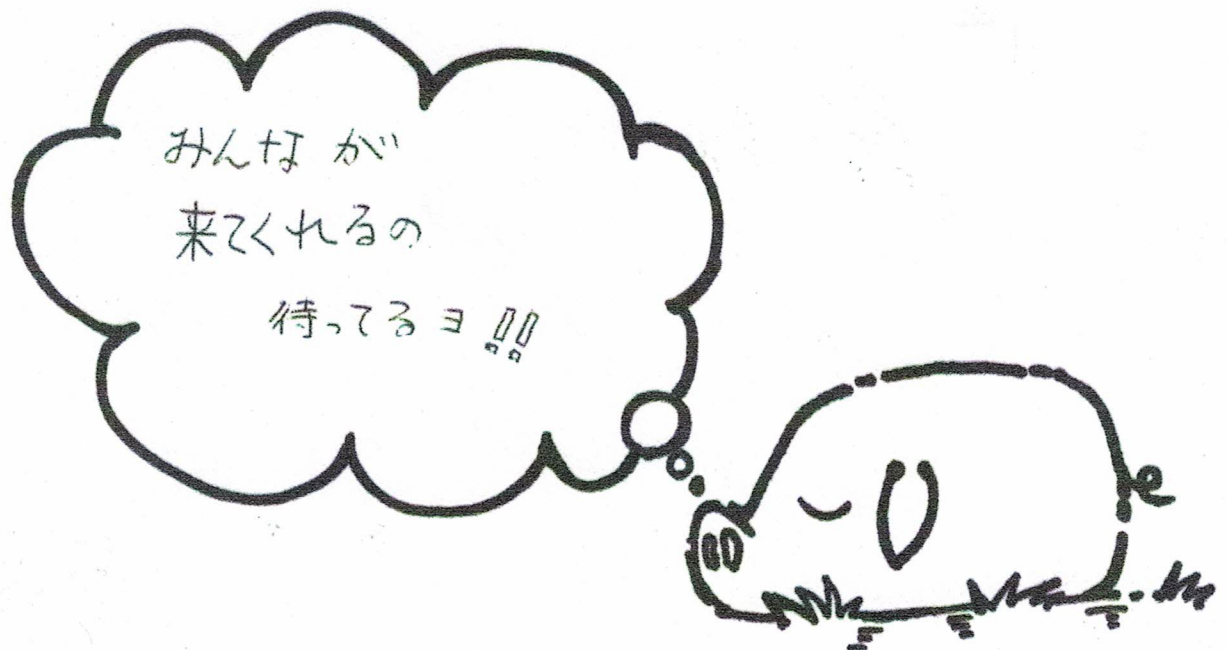 みんなが
来てくれるの
待ってるヨ!!